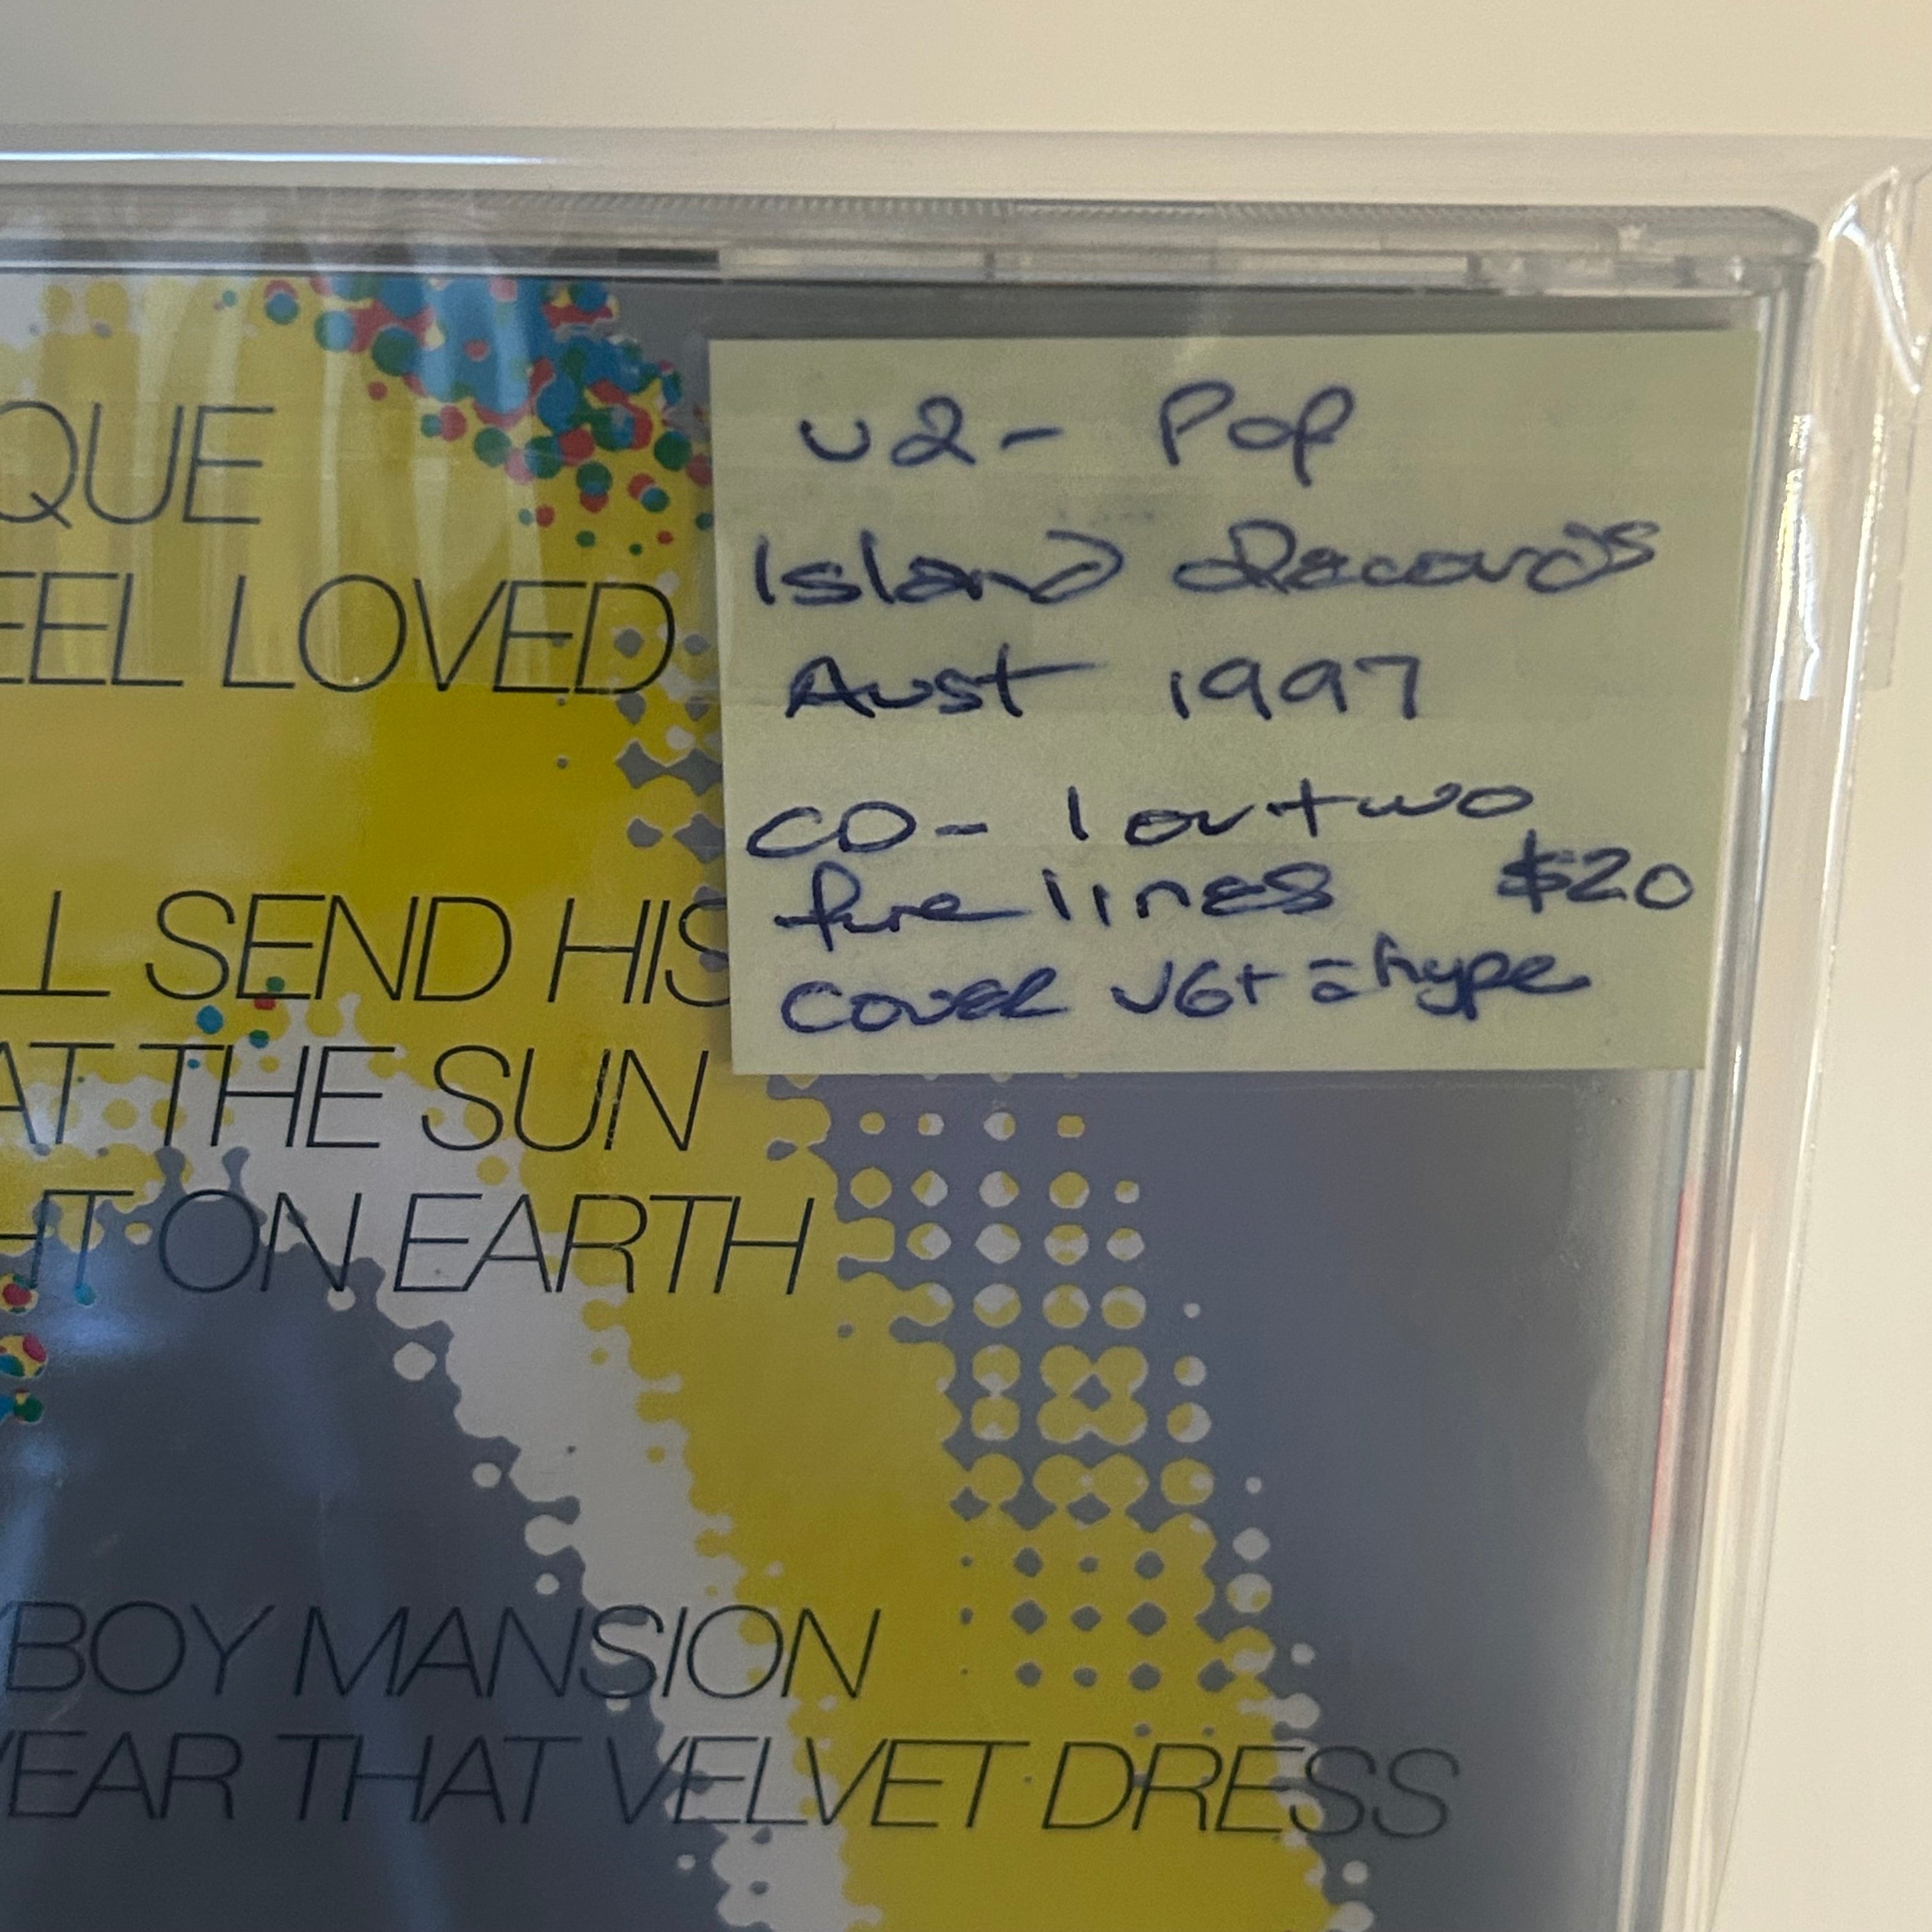 QUE
EEL LOVED
LL SEND HIS
AT THE SUN
HT ON EARTH
YBOY MANSION
WEAR THAT VELVET DRESS
U2 - Pop
Island Records
Aust 1997
CD - 1 or two
fine lines $20
Cover VG+ = hype